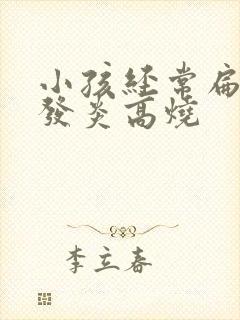 小孩经常扁
發炎高燒
李立春